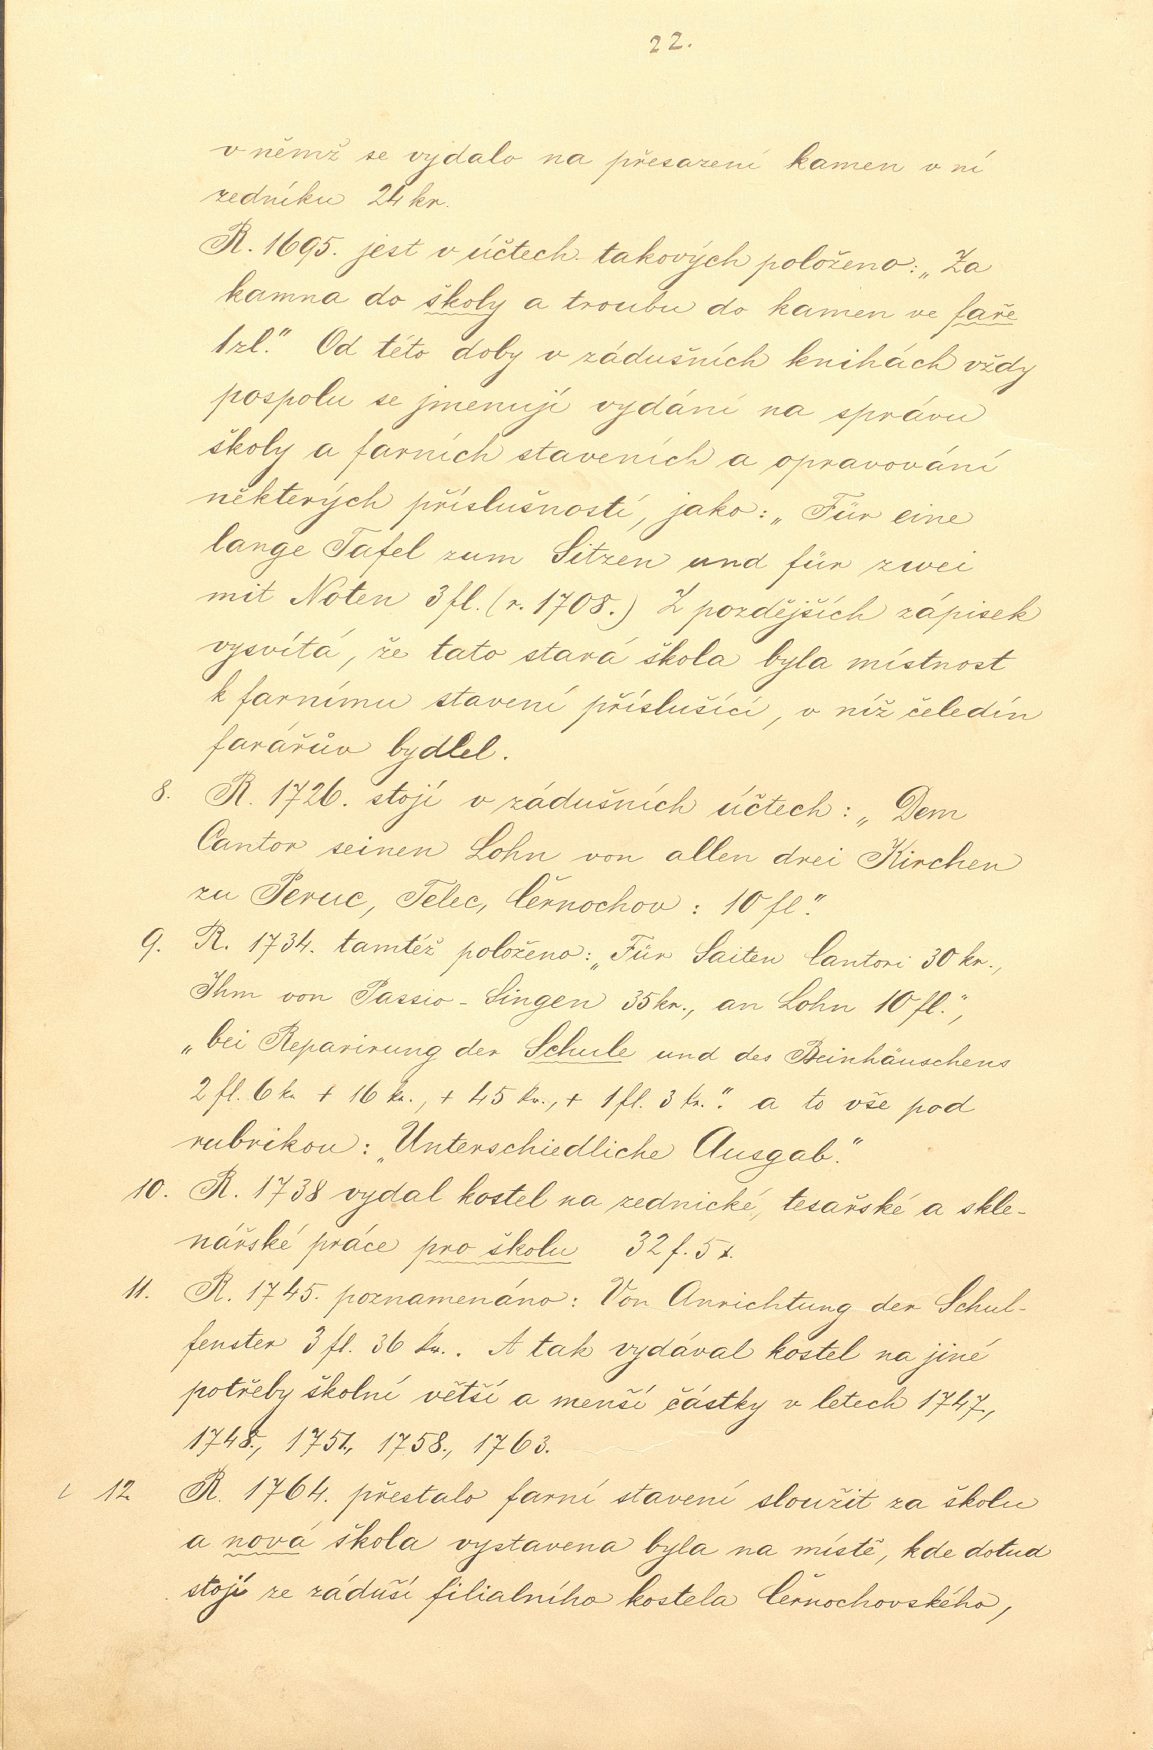 22.
v němž se vydalo na přesazení kamen v ní
zedníku 24 kr.
R. 1695. jest v účtech takových položeno: „Za
kamna do školy a troubu do kamen ve faře
1 zl." Od této doby v zádušních knihách vždy
pospolu se jmenují vydání na správu
školy a farních staveních a opravování
některých příslušností, jako: „Für eine
lange Tafel zum Sitzen und für zwei
mit Noten 3 fl. (r. 1708.) Z pozdějších zápisek
vysvítá, že tato stará škola byla místnost
k farnímu stavení příslušící, v níž čeledín
farářův bydlel.
8. R. 1726. stojí v zádušních účtech: „Dem
Cantor seinen Lohn von allen drei Kirchen
zu Peruc, Telec, Černochov: 10 fl."
9. R. 1734. tamtéž položeno: „Für Saiten Cantori 30 kr.,
Ihm von Passio-Singen 35 kr., an Lohn 10 fl.",
„bei Reparirung der Schule und des Beinhäuschens
2 fl. 6 kr + 16 kr., + 45 kr., + 1 fl. 3 kr.". a to vše pod
rubrikou: „Unterschiedliche Ausgab."
10. R. 1738 vydal kostel na zednické, tesařské a skle-
nářské práce pro školu 32 f. 5 x.
11. R. 1745. poznamenáno: Von Anrichtung der Schul-
fenster 3 fl. 36 kr.. A tak vydával kostel na jiné
potřeby školní větší a menší částky v letech 1747.,
1748., 1751., 1758., 1763.
12 R. 1764. přestalo farní stavení sloužit za školu
a nová škola vystavena byla na místě, kde dotud
stojí ze záduší filialního kostela Černochovského,